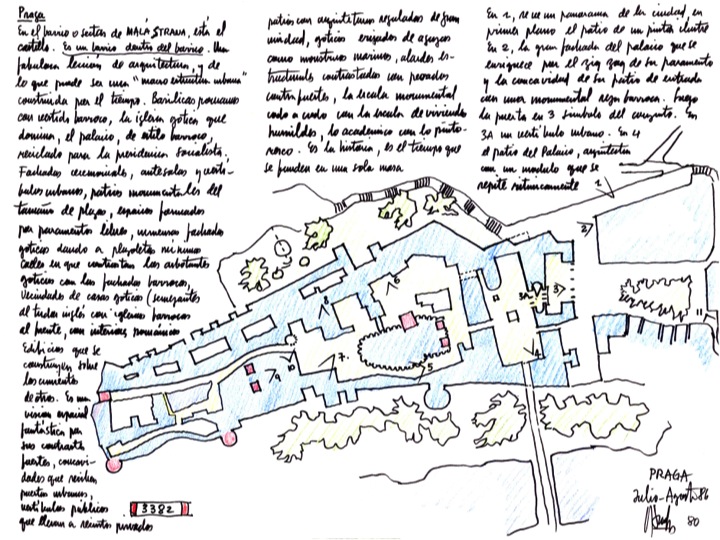 Praga
En el barrio o sector de MALÁ STRANA, está el
castillo. Es un barrio dentro del barrio. Una
fabulosa lección de arquitectura, y de
lo que puede ser una "macro estructura urbana"
construida por el tiempo. Basílicas románicas
con vestido barroco, la iglesia gótica que
domina, el palacio, de estilo barroco,
reciclado para la presidencia socialista,
Fachadas ceremoniales, antesalas y vestí-
bulos urbanos, patios monumentales del
tamaño de plazas, espacios formados
por paramentos lelos, inmensas fachadas
góticas dando a plazoletas mínimas
Calles en que contrastan los arbotantes
góticos con las fachadas barrocas,
Vecindades de casas góticas (semejantes
al tudor inglés con iglesias barrocas
al frente, con interiores románicos
Edificios que se
construyen sobre
los cimientos
de otros. Es una
visión espacial
fantástica por
sus contrastes
fuertes, concavi-
dades que reciben,
puertas urbanas,
vestíbulos públicos
que llevan a recintos privados
patios con arquitecturas reguladas de gran
unidad, góticos erizados de agujas
como monstruos marinos, alardes es-
tructurales contrastados con pesados
contrafuertes, la escala monumental
codo a codo con la escala de viviendas
humildes, lo académico con lo pinto-
resco. Es la historia, es el tiempo que
se funden en una sola masa
En 1, se ve un panorama de la ciudad, en
primer plano el patio de un pintor ilustre
En 2, la gran fachada del palacio que se
enriquece por el zig zag de su paramento
y la concavidad de su patio de entrada
con unor monumental reja barroca. Luego
la puerta en 3 símbolo del conjunto. En
3A un vestíbulo urbano. En 4
el patio del Palacio, arquitectura
con un modulo que se
repite rítmicamente
1
2
3
3A
4
5
6
7.
8
9
10
3382
PRAGA
Julio-Agosto 86
80